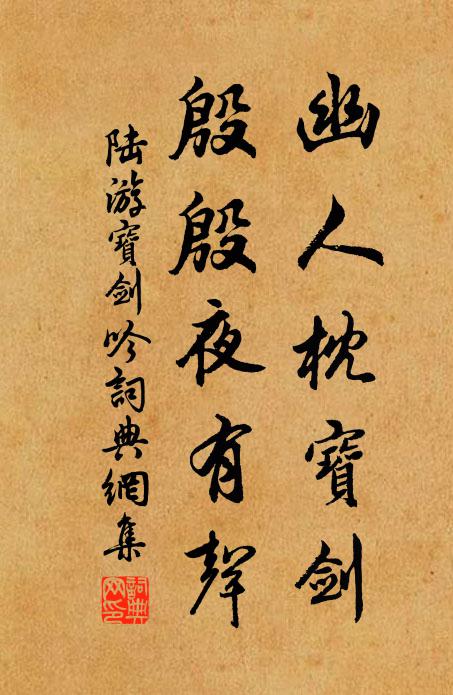 幽人枕寶劍
殷殷夜有聲
陸游寶劍吟詞典網集
詞典網印